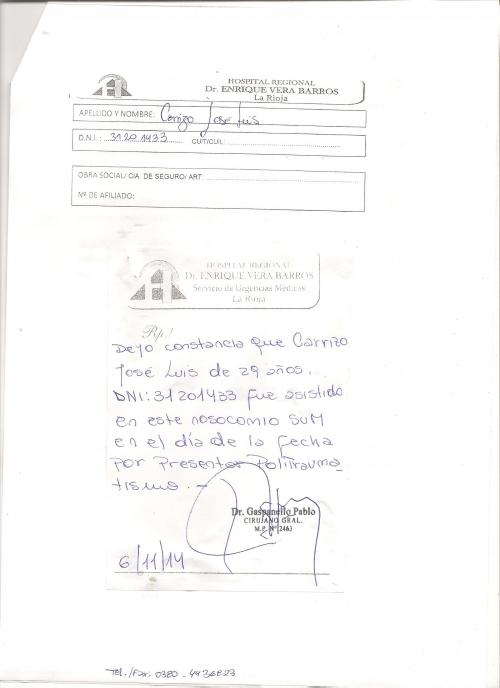 HOSPITAL REGIONAL
Dr. ENRIQUE VERA BARROS
La Rioja
APELLIDO Y NOMBRE: Carrizo José Luis
D.N.I.: 31201433 CUIT/CUIL:
OBRA SOCIAL/ CIA. DE SEGURO/ ART:
Nº DE AFILIADO:
HOSPITAL REGIONAL
Dr. ENRIQUE VERA BARROS
Servicio de Urgencias Médicas
La Rioja
Rp./
Dejo constancia que Carrizo
José Luis de 29 años,
DNI: 31201433 fue asistido
en este nosocomio SUM
en el día de la fecha
por presentar Politrauma
tismo. -
Dr. Gaspanello Pablo
CIRUJANO GRAL.
M.P. Nº 2463
6/11/14
TEL./Fax: 0380 - 4436823